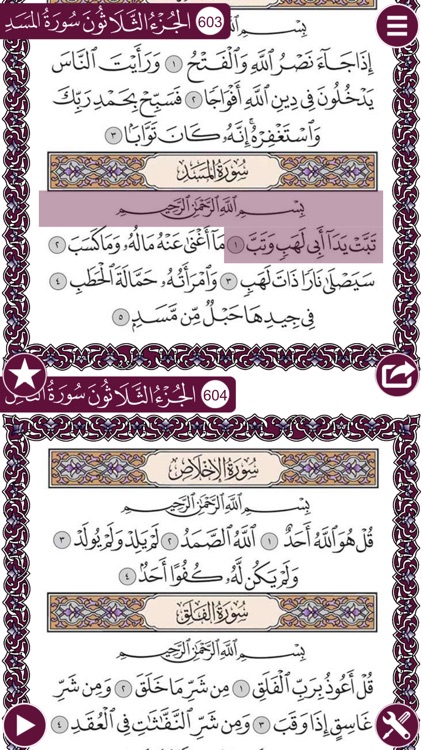 الجُزْءُ الثَّلَاثُونَ سُورَةُ المَسَدِ 603
بِسْمِ اللَّهِ الرَّحْمَٰنِ الرَّحِيمِ
إِذَا جَآءَ نَصْرُ ٱللَّهِ وَٱلْفَتْحُ ١ وَرَأَيْتَ ٱلنَّاسَ
يَدْخُلُونَ فِي دِينِ ٱللَّهِ أَفْوَاجًا ٢ فَسَبِّحْ بِحَمْدِ رَبِّكَ
وَٱسْتَغْفِرْهُ إِنَّهُۥ كَانَ تَوَّابًۢا ٣
سُورَةُ المَسَدِ
بِسْمِ اللَّهِ الرَّحْمَٰنِ الرَّحِيمِ
تَبَّتْ يَدَآ أَبِي لَهَبٍ وَتَبَّ ١ مَآ أَغْنَىٰ عَنْهُ مَالُهُۥ وَمَا كَسَبَ ٢
سَيَصْلَىٰ نَارًا ذَاتَ لَهَبٍ ٣ وَٱمْرَأَتُهُۥ حَمَّالَةَ ٱلْحَطَبِ ٤
فِي جِيدِهَا حَبْلٌ مِّن مَّسَدٍۭ ٥
الجُزْءُ الثَّلَاثُونَ سُورَةُ 604
سُورَةُ الإِخْلَاصِ
بِسْمِ اللَّهِ الرَّحْمَٰنِ الرَّحِيمِ
قُلْ هُوَ ٱللَّهُ أَحَدٌ ١ ٱللَّهُ ٱلصَّمَدُ ٢ لَمْ يَلِدْ وَلَمْ يُولَدْ ٣
وَلَمْ يَكُن لَّهُۥ كُفُوًا أَحَدٌۢ ٤
سُورَةُ الفَلَقِ
بِسْمِ اللَّهِ الرَّحْمَٰنِ الرَّحِيمِ
قُلْ أَعُوذُ بِرَبِّ ٱلْفَلَقِ ١ مِن شَرِّ مَا خَلَقَ ٢ وَمِن شَرِّ
غَاسِقٍ إِذَا وَقَبَ ٣ وَمِن شَرِّ ٱلنَّفَّٰثَٰتِ فِي ٱلْعُقَدِ ٤